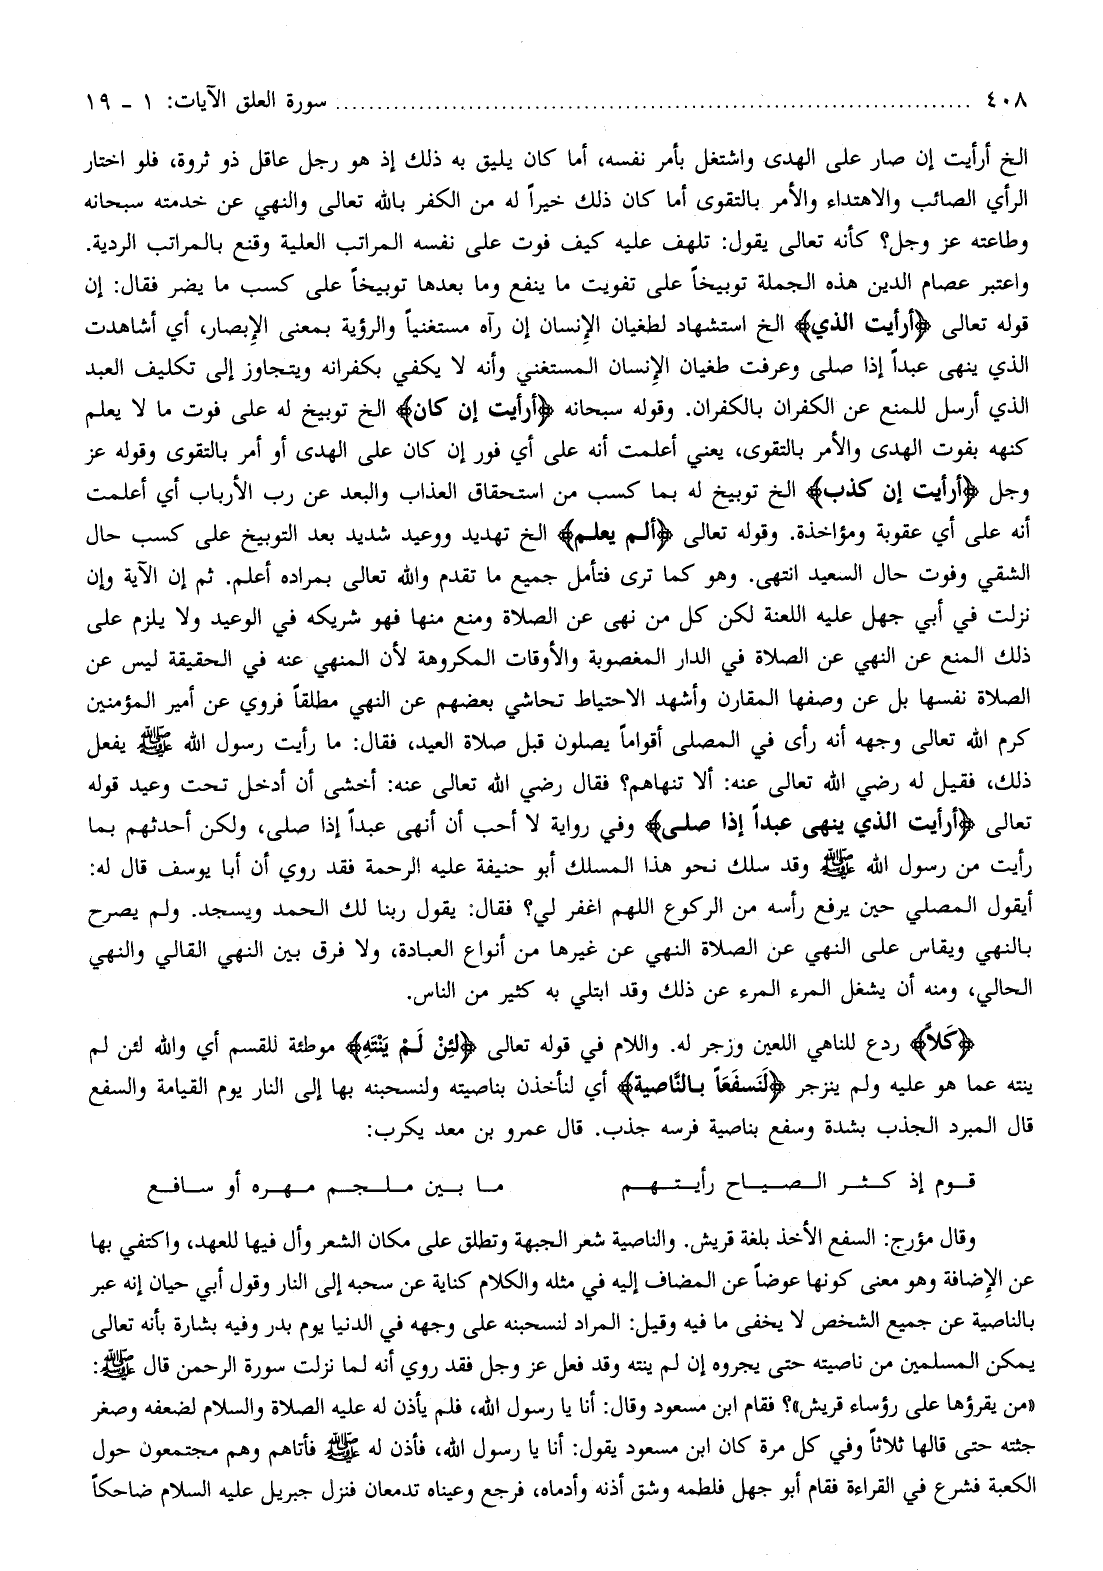 ٤٠٨ ........................................ سورة العلق الآيات: ١ - ١٩
الخ أرأيت إن صار على الهدى واشتغل بأمر نفسه، أما كان يليق به ذلك إذ هو رجل عاقل ذو ثروة، فلو اختار
الرأي الصائب والاهتداء والأمر بالتقوى أما كان ذلك خيراً له من الكفر بالله تعالى والنهي عن خدمته سبحانه
وطاعته عز وجل؟ كأنه تعالى يقول: تلهف عليه كيف فوت على نفسه المراتب العلية وقنع بالمراتب الردية.
واعتبر عصام الدين هذه الجملة توبيخاً على تفويت ما ينفع وما بعدها توبيخاً على كسب ما يضر فقال: إن
قوله تعالى ﴿أرأيت الذي﴾ الخ استشهاد لطغيان الإنسان إن رآه مستغنياً والرؤية بمعنى الإبصار، أي أشاهدت
الذي ينهى عبداً إذا صلى وعرفت طغيان الإنسان المستغني وأنه لا يكفي بكفرانه ويتجاوز إلى تكليف العبد
الذي أرسل للمنع عن الكفران بالكفران. وقوله سبحانه ﴿أرأيت إن كان﴾ الخ توبيخ له على فوت ما لا يعلم
كنهه بفوت الهدى والأمر بالتقوى، يعني أعلمت أنه على أي فور إن كان على الهدى أو أمر بالتقوى وقوله عز
وجل ﴿أرأيت إن كذب﴾ الخ توبيخ له بما كسب من استحقاق العذاب والبعد عن رب الأرباب أي أعلمت
أنه على أي عقوبة ومؤاخذة. وقوله تعالى ﴿ألم يعلم﴾ الخ تهديد ووعيد شديد بعد التوبيخ على كسب حال
الشقي وفوت حال السعيد انتهى. وهو كما ترى فتأمل جميع ما تقدم والله تعالى بمراده أعلم. ثم إن الآية وإن
نزلت في أبي جهل عليه اللعنة لكن كل من نهى عن الصلاة ومنع منها فهو شريكه في الوعيد ولا يلزم على
ذلك المنع عن النهي عن الصلاة في الدار المغصوبة والأوقات المكروهة لأن المنهي عنه في الحقيقة ليس عن
الصلاة نفسها بل عن وصفها المقارن وأشهد الاحتياط تحاشي بعضهم عن النهي مطلقاً فروي عن أمير المؤمنين
كرم الله تعالى وجهه أنه رأى في المصلى أقواماً يصلون قبل صلاة العيد، فقال: ما رأيت رسول الله ﷺ يفعل
ذلك، فقيل له رضي الله تعالى عنه: ألا تنهاهم؟ فقال رضي الله تعالى عنه: أخشى أن أدخل تحت وعيد قوله
تعالى ﴿أرأيت الذي ينهى عبداً إذا صلى﴾ وفي رواية لا أحب أن أنهى عبداً إذا صلى، ولكن أحدثهم بما
رأيت من رسول الله ﷺ وقد سلك نحو هذا المسلك أبو حنيفة عليه الرحمة فقد روي أن أبا يوسف قال له:
أيقول المصلي حين يرفع رأسه من الركوع اللهم اغفر لي؟ فقال: يقول ربنا لك الحمد ويسجد. ولم يصرح
بالنهي ويقاس على النهي عن الصلاة النهي عن غيرها من أنواع العبادة، ولا فرق بين النهي القالي والنهي
الحالي، ومنه أن يشغل المرء المرء عن ذلك وقد ابتلي به كثير من الناس.
﴿كَلاَّ﴾ ردع للناهي اللعين وزجر له. واللام في قوله تعالى ﴿لَئِنْ لَمْ يَنْتَهِ﴾ موطئة للقسم أي والله لئن لم
ينته عما هو عليه ولم ينزجر ﴿لَنَسفَعَاً بالنَّاصية﴾ أي لنأخذن بناصيته ولنسحبنه بها إلى النار يوم القيامة والسفع
قال المبرد الجذب بشدة وسفع بناصية فرسه جذب. قال عمرو بن معد يكرب:
قوم إذ كثر الصياح رأيتهم ما بين ملجم مهره أو سافع
وقال مؤرج: السفع الأخذ بلغة قريش. والناصية شعر الجبهة وتطلق على مكان الشعر وأل فيها للعهد، واكتفي بها
عن الإضافة وهو معنى كونها عوضاً عن المضاف إليه في مثله والكلام كناية عن سحبه إلى النار وقول أبي حيان إنه عبر
بالناصية عن جميع الشخص لا يخفى ما فيه وقيل: المراد لنسحبنه على وجهه في الدنيا يوم بدر وفيه بشارة بأنه تعالى
يمكن المسلمين من ناصيته حتى يجروه إن لم ينته وقد فعل عز وجل فقد روي أنه لما نزلت سورة الرحمن قال ﷺ:
«من يقرؤها على رؤساء قريش»؟ فقام ابن مسعود وقال: أنا يا رسول الله، فلم يأذن له عليه الصلاة والسلام لضعفه وصغر
جثته حتى قالها ثلاثاً وفي كل مرة كان ابن مسعود يقول: أنا يا رسول الله، فأذن له ﷺ فأتاهم وهم مجتمعون حول
الكعبة فشرع في القراءة فقام أبو جهل فلطمه وشق أذنه وأدماه، فرجع وعيناه تدمعان فنزل جبريل عليه السلام ضاحكاً